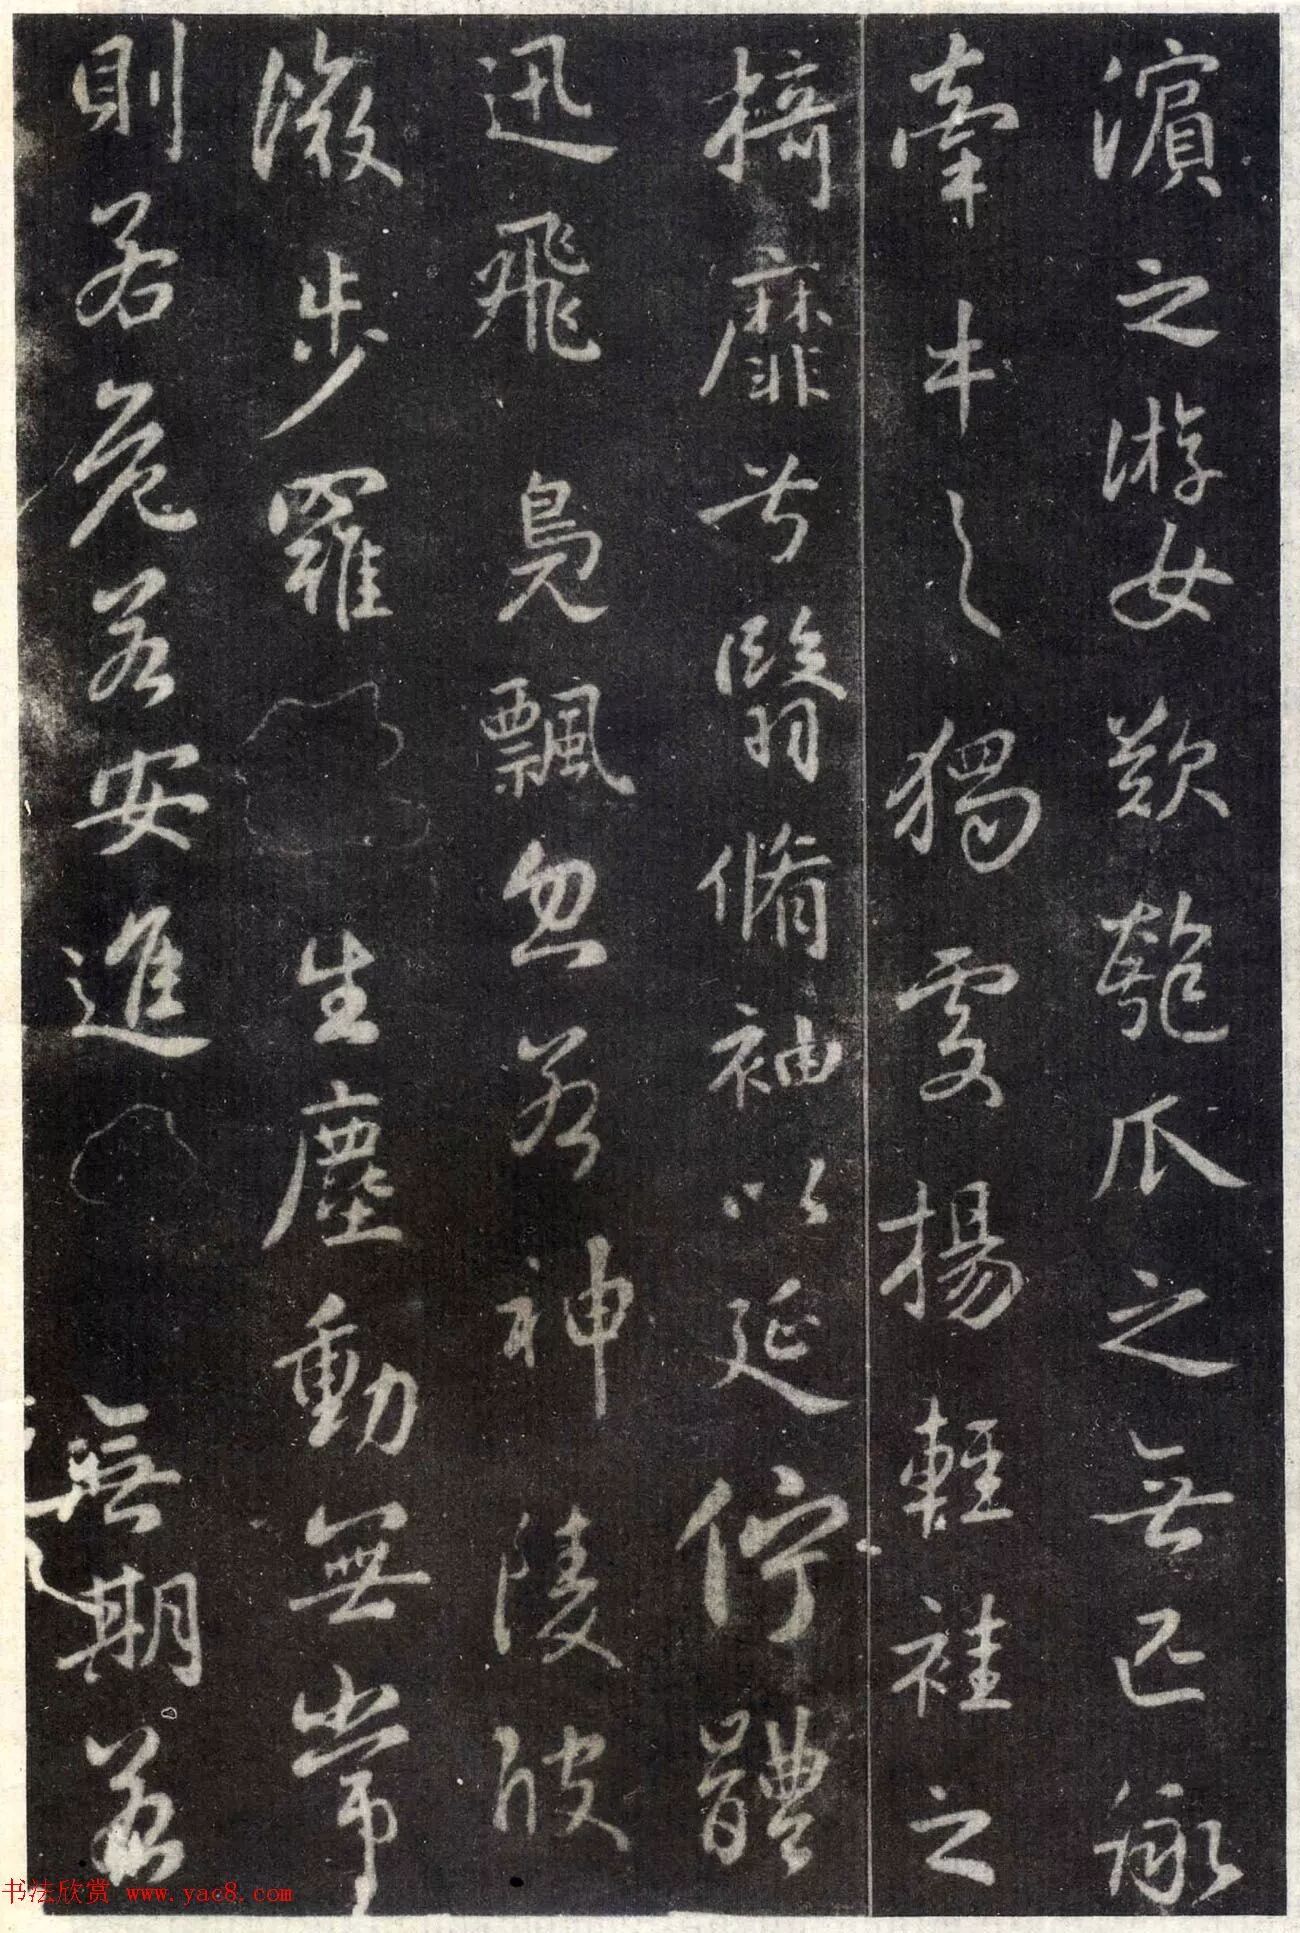 濱之游女歎匏瓜之無匹詠
牽牛之獨處揚輕袿之
猗靡兮翳脩袖以延佇體
迅飛鳧飄忽若神陵波
微步羅生塵動無常
則若危若安進無期若
书法欣赏 www.yac8.com